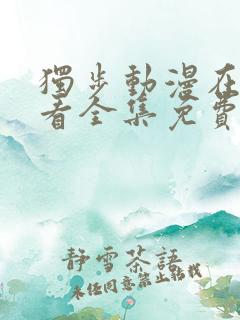 獨步動漫在
看全集免費
靜雪茶語
未經同意禁止轉載